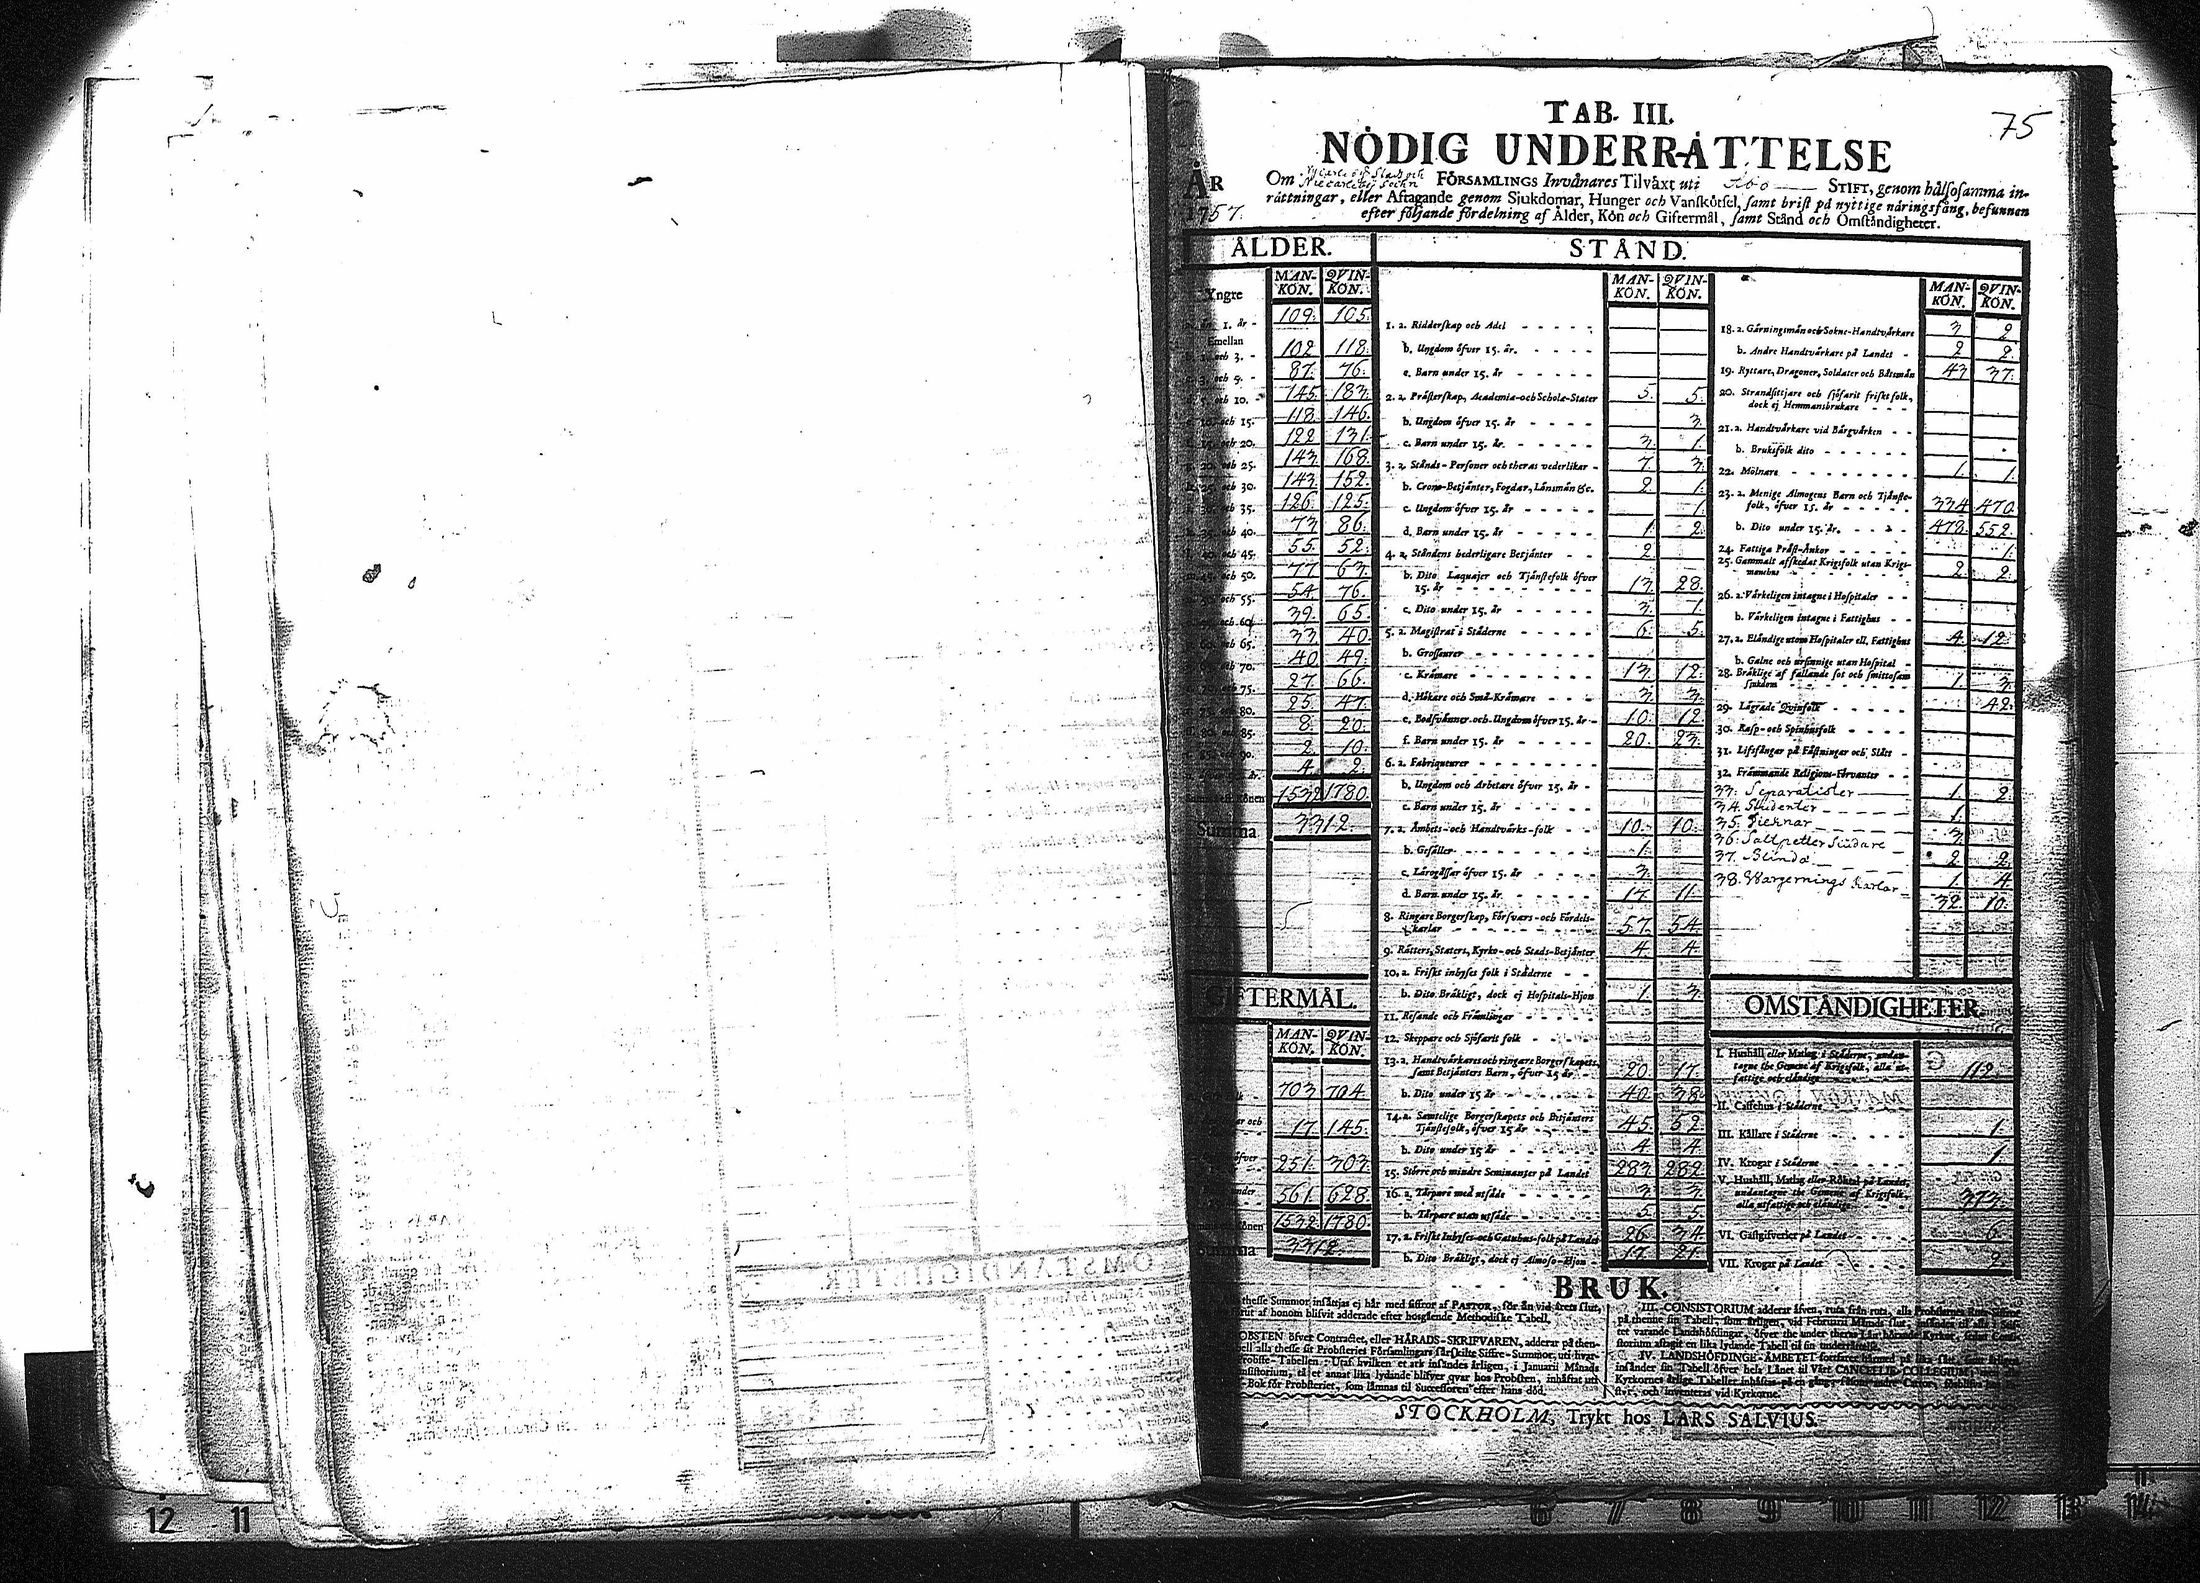 75
TAB. III.
NÖDIG UNDERRÄTTELSE
ÅR 1757.
Om Nycarleby Stad och Niecarleby Sochn FÖRSAMLINGS Invånares Tilväxt uti Åbo STIFT, genom hälsosamma in-
rättningar, eller Aftagande genom Sjukdomar, Hunger och Vanskötsel, samt brist på nyttige näringsfång, befunnen
efter följande fördelning af Ålder, Kön och Giftermål, samt Stånd och Omständigheter.
ÅLDER.
MAN-KÖN. QVIN-KÖN.
Yngre
1. år - 109. 105.
Emellan
1. och 3. - 102 118.
3. och 5. - 87. 76.
5. och 10. - 145. 183.
10. och 15. 118. 146.
15. och 20. 122 131.
20. och 25. 143. 168.
25. och 30. 143. 152.
30. och 35. 126. 125.
35. och 40. 73. 86.
40. och 45. 55. 52.
45. och 50. 77. 63.
50. och 55. 54. 76.
55. och 60. 39. 65.
60. och 65. 33. 40.
65. och 70. 40. 49.
70. och 75. 27. 66.
75. och 80. 25. 47.
80. och 85. 8. 20.
85. och 90. 2. 10.
4. 2.
Könen 1532 1780.
Summa 3312.
GIFTERMÅL.
MAN-KÖN. QVIN-KÖN.
703 704
17. 145.
öfver 251. 303.
under 561. 628.
Könen 1532. 1780.
Summa 3312.
STÅND.
MAN-KÖN. QVIN-KÖN.
1. a. Ridderskap och Adel
b. Ungdom öfver 15. år.
c. Barn under 15. år
2. a. Prästerskap, Academiæ- och Scholæ-Stater 5. 5.
b. Ungdom öfver 15. år 3.
c. Barn under 15. år. 3. 1.
3. a. Stånds-Personer och theras vederlikar 7. 3.
b. Crono-Betjänter, Fogdar, Länsmän &c. 2. 1.
c. Ungdom öfver 15. år 1.
d. Barn under 15. år 1. 2.
4. a. Ståndens hederligare Betjänter 2.
b. Dito Laquajer och Tjänstefolk öfver
15. år 13. 28.
c. Dito under 15. år 3. 1.
5. a. Magistrat i Städerne 6. 5.
b. Grosseurer
c. Krämare 13. 12.
d. Hökare och Små-Krämare 3. 3.
e. Bodsvänner och Ungdom öfver 15. år 10. 12.
f. Barn under 15. år 20. 23.
6. a. Fabriqueurer
b. Ungdom och Arbetare öfver 15. år
c. Barn under 15. år
7. a. Ämbets- och Handtvärks-folk 10. 10.
b. Gesäller 1.
c. Lärogåssar öfver 15. år 3.
d. Barn under 15. år 17. 11.
8. Ringare Borgerskap, Försvars- och Fördels-
karlar 57. 54.
9. Rätters, Staters, Kyrko- och Stads-Betjänter 4. 4
10. a. Friskt inhyses folk i Städerne
b. Dito Bräkligt, dock ej Hospitals-Hjon 1. 3.
11. Resande och Främlingar
12. Skeppare och Sjöfarit folk
13. a. Handtvärkares och ringare Borgerskapets,
samt Betjänters Barn, öfver 15 år 20. 17.
b. Dito under 15 år 40. 38.
14. a. Samtelige Borgerskapets och Betjänters
Tjänstefolk, öfver 15 år 45. 52.
b. Dito under 15 år 4. 4.
15. Större och mindre Hemmansr på Landet 283. 282.
16. a. Torpare med utsäde 3. 3.
b. Torpare utan utsäde 5. 5.
17. a. Friskt Inhyses- och Gatuhus-folk på Landet 26. 34.
b. Dito Bräkligt, dock ej Almoso-Hjon 17. 21.
MAN-KÖN. QVIN-KÖN.
18. a. Gärningsmän och Sokne-Handtvärkare 3 2.
b. Andre Handtvärkare på Landet 2 2.
19. Ryttare, Dragoner, Soldater och Båtsmän 43 37.
20. Strandsittjare och sjöfarit friskt folk,
dock ej Hemmansbrukare
21. a. Handtvärkare vid Bärgvärken
b. Bruksfolk dito
22. Mölnare 1. 1.
23. a. Menige Almogens Barn och Tjänste-
folk, öfver 15. år 334 470.
b. Dito under 15. år. 478. 552.
24. Fattiga Präst-Änkor 1.
25. Gammalt afskedat Krigsfolk utan Krigs-
manshus 2. 2.
26. a. Värkeligen intagne i Hospitaler
b. Värkeligen intagne i Fattighus
27. a. Eländige utom Hospitaler ell. Fattighus 4. 12.
b. Galne och ursinnige utan Hospital
28. Bräklige af fallande sot och smittosam
sjukdom 1. 3.
29. Lägrade Qvinfolk 42.
30. Rasp- och Spinhusfolk
31. Lifsfångar på Fästningar och Slått
32. Främmande Religions-Förvanter
33. Separatister 1. 2.
34. Studenter 1.
35. 3.
36. Saltpetter Siudare 2. 2.
37. Blinda 1. 4
38. Wargernings Karlar 32. 10.
OMSTÄNDIGHETER.
I. Hushåll eller Matlag i Städerne, undan-
tagne the Gemene af Krigsfolk, alla ut-
fattige och eländige 112.
II. Caffehus i Städerne
III. Källare i Städerne 1.
IV. Krogar i Städerne 1
V. Hushåll, Matlag eller Röketal på Landet,
undantagne the Gemene af Krigsfolk,
alla utfattige och eländige 373.
VI. Gästgifverier på Landet 6.
VII. Krogar på Landet 2.
BRUK.
thesse Summor insättjas ej här med siffror af PASTOR, för än vid årets slut,
af honom blifvit adderade efter högstående Methodiske Tabell.
OBSTEN öfver Contractet, eller HÄRADS-SKRIFVAREN, adderar på then-
alla thesse sit Probsteries Församlingars särskilte Siffre-Summor, uti hvar-
Tabellen: Utaf hvilken et ark insändes årligen, i Januarii Månads
så et annat lika lydande blifver qvar hos Probsten, inhäftat uti
Bok för Probsteriet, som lämnas til Successoren efter hans död.
III. CONSISTORIUM adderar äfven, ruta från ruta, alla
på thenne sin Tabell, som årligen, vid Februarii Månads slut, insändes til
varande Landshöfdingar, öfver the under theras Län hörande Kyrkor,
storium aftagit en lika lydande Tabell til sin underrättelse.
IV. LANDSHÖFDINGE-ÄMBETET
insänder sin Tabell öfver hela Länet til Vårt CANCELLIE-COLLEGIUM,
Kyrkornes årlige Tabeller inhäftas på en gång,
och inventeras vid Kyrkorne.
STOCKHOLM, Trykt hos LARS SALVIUS.
12 11 6 7 8 9 10 11 12 13 14